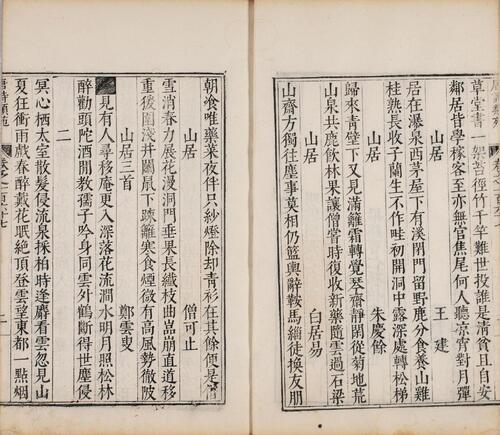 草堂書一架苔徑竹千竿難世投誰是清貧且自安
鄰居皆學稼客至亦無官焦尾何人聽涼宵對月彈
山居
王建
居在瀑泉西茅屋下有溪閉門留野鹿分食養山雞
桂熟長收子蘭生不作畦初開洞中露深處轉松梯
山居
朱慶餘
歸來青壁下又見滿籬霜轉覺琴齋靜閒從菊地荒
山泉共鹿飲林果讓僧嘗時復收新藥隨雲過石梁
山居
白居易
山齋方獨往塵事莫相仍籃輿辭鞍馬緇徒換友朋
朝飡唯藥菜夜伴只紗燈除却青衫在其餘便是僧
山居
僧可止
雪消春力展花漫洞門垂果長纖枝曲嵓崩直道移
重猨圍淺井鬬鼠下疎籬寒食煙微有高風勢徹陂
山居三首
鄭雲叟
見有人尋移庵更入深落花流澗水明月照松林
醉勸頭陀酒閒教孺子吟身同雲外鶴斷得世塵侵
二
冥心栖太室散髮侵流泉採柏時逢麝看雲忽見仙
夏狂衝雨戲春醉戴花眠絶頂登雲望東都一點烟
唐詩類苑